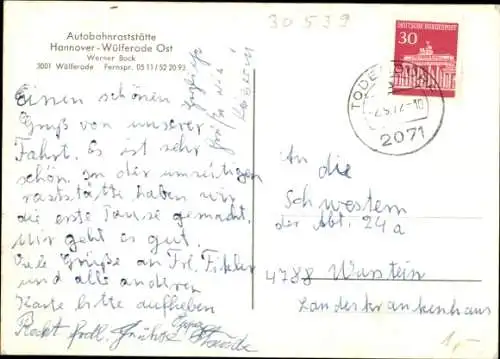 Autobahnraststätte
Hannover - Wülferode Ost
Werner Bock
3001 Wülferode Fernspr. 05 11 / 52 20 93
30539
DEUTSCHE BUNDESPOST
30
2071
Einen schönen
Gruß von unserer
Fahrt. Es ist sehr
schön, an der umseitigen
raststätte haben wir
die erste Pause gemacht.
Mir geht es gut.
Viele Grüße an Frl.
und alle anderen
Karte bitte aufheben
Recht frdl. Grüße
An die
Schwestern
der Abt. 24a
4788 Warstein
Landeskrankenhaus
1,-